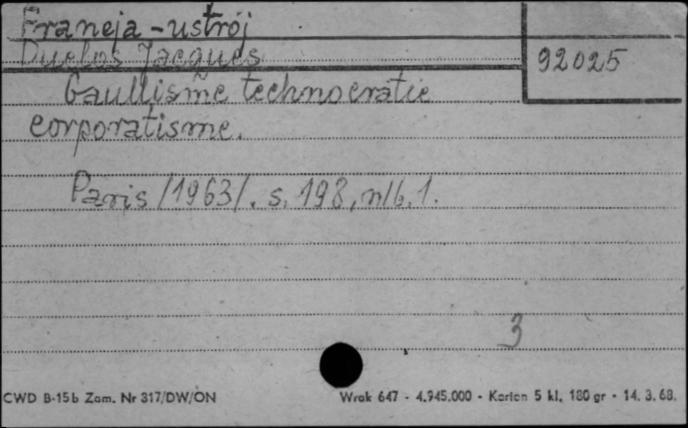 Francja - ustrój
Duclos Jacques
92025
Gaullisme technocratie
corporatisme.
Paris /1963/. s. 198, nlb. 1.
3
CWD B-15b Zam. Nr 317/DW/ON
Wrok 647 - 4.945.000 - Karton 5 kl. 180 gr - 14. 3. 68.